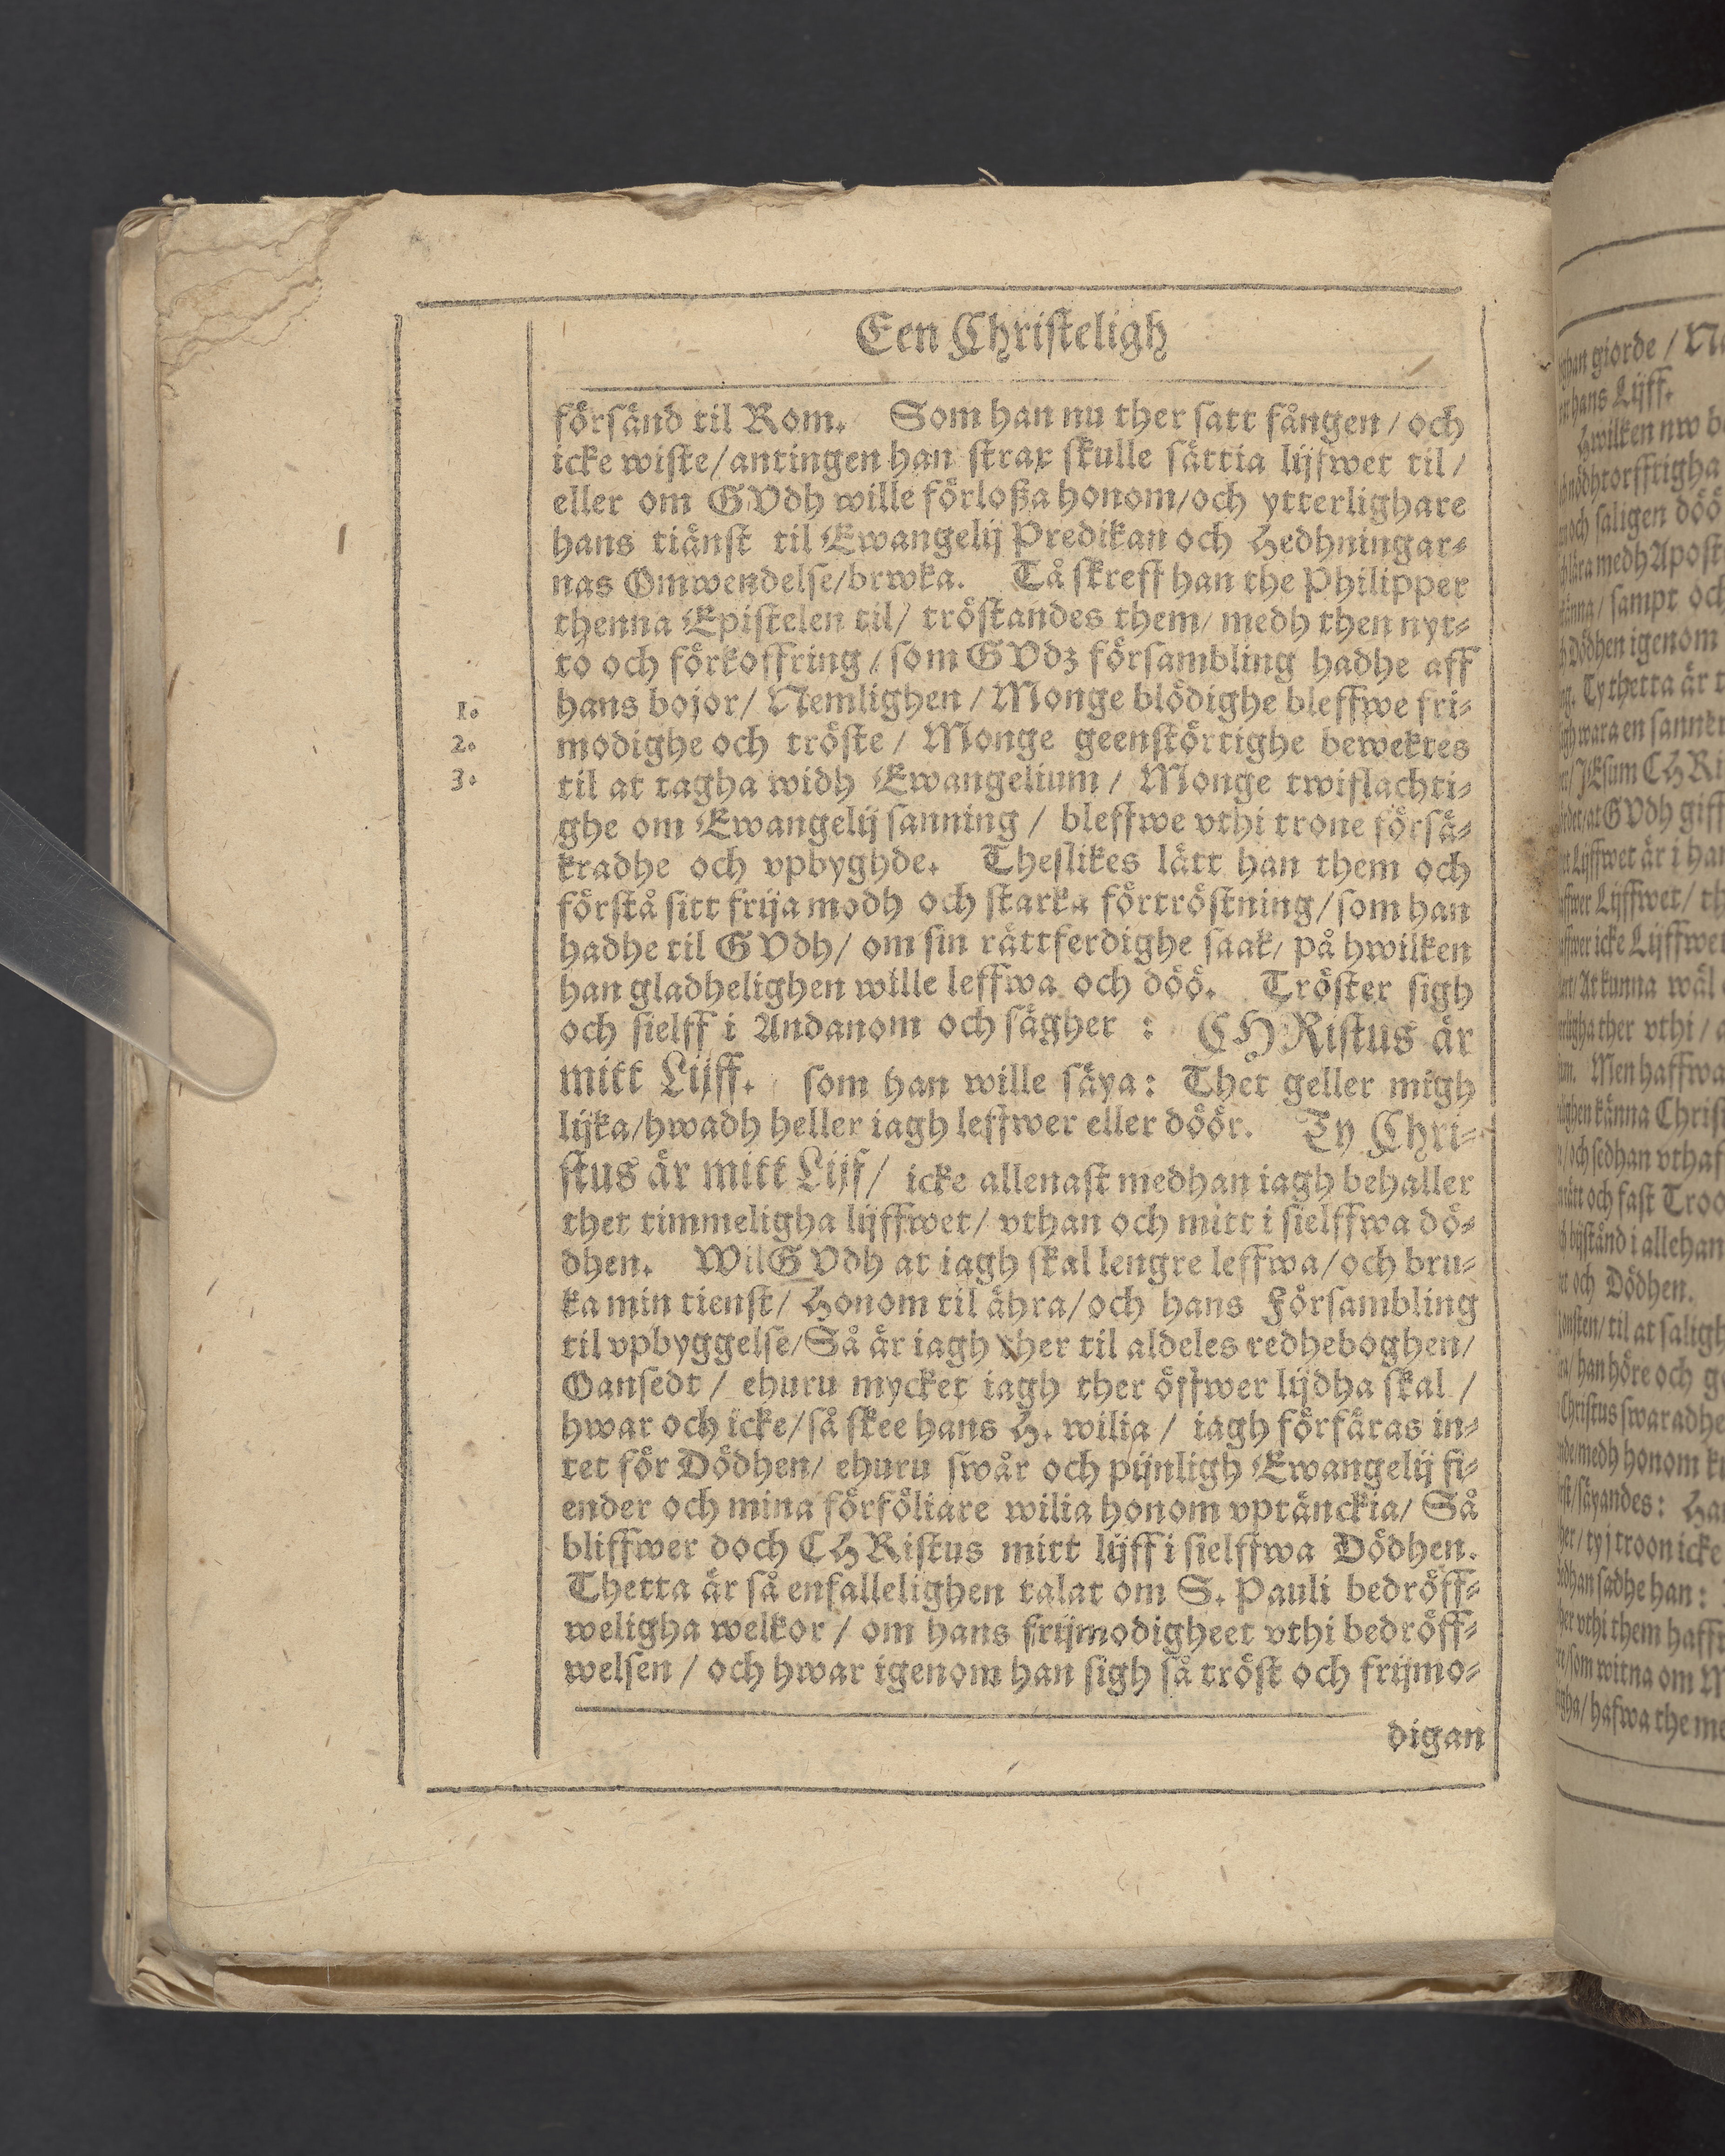 Een Christeligh
försänd til Rom. Som han nu ther satt fången / och
icke wiste / antingen han strax skulle sättia lijfwet til /
eller om GVdh wille förloßa honom / och ytterlighare
hans tiänst til Ewangelij Predikan och Hedhningar-
nas Omwendelse / brwka. Tå skreff han the Philipper
thenna Epistelen til / tröstandes them / medh then nyt-
to och förkoffring / som GVdz försambling hadhe aff
1. hans bojor / Nemlighen / Monge blödighe bleffwe fri-
2. modighe och tröste / Monge geenstörtighe bewektes
3. til at tagha widh Ewangelium / Monge twiflachti-
ghe om Ewangelij sanning / bleffwe vthi trone försä-
kradhe och vpbyghde. Theslikes lätt han them och
förstå sitt frija modh och starka förtröstning / som han
hadhe til GVdh / om sin rättferdighe saak / på hwilken
han gladhelighen wille leffwa och döö. Tröster sigh
och sielff i Andanom och sägher : CHRistus är
mitt Lijff. som han wille säya: Thet geller migh
lijka / hwadh heller iagh leffwer eller döör. Ty Chri-
stus är mitt Lijf / icke allenast medhan iagh behaller
thet timmeligha lijffwet / vthan och mitt i sielffwa dö-
dhen. Wil GVdh at iagh skal lengre leffwa / och bru-
ka min tienst / Honom til ähra / och hans Försambling
til vpbyggelse / Så är iagh ther til aldeles redheboghen /
Oansedt / ehuru mycket iagh ther öffwer lijdha skal /
hwar och icke / så skee hans H. wilia / iagh förfäras in-
tet för Dödhen / ehuru swår och pijnligh Ewangelij fi-
ender och mina förföliare wilia honom vptänckia / Så
bliffwer doch CHRistus mitt lijff i sielffwa Dödhen.
Thetta är så enfallelighen talat om S. Pauli bedröff-
weligha welkor / om hans frijmodigheet vthi bedröff-
welsen / och hwar igenom han sigh så tröst och frijmo-
digan